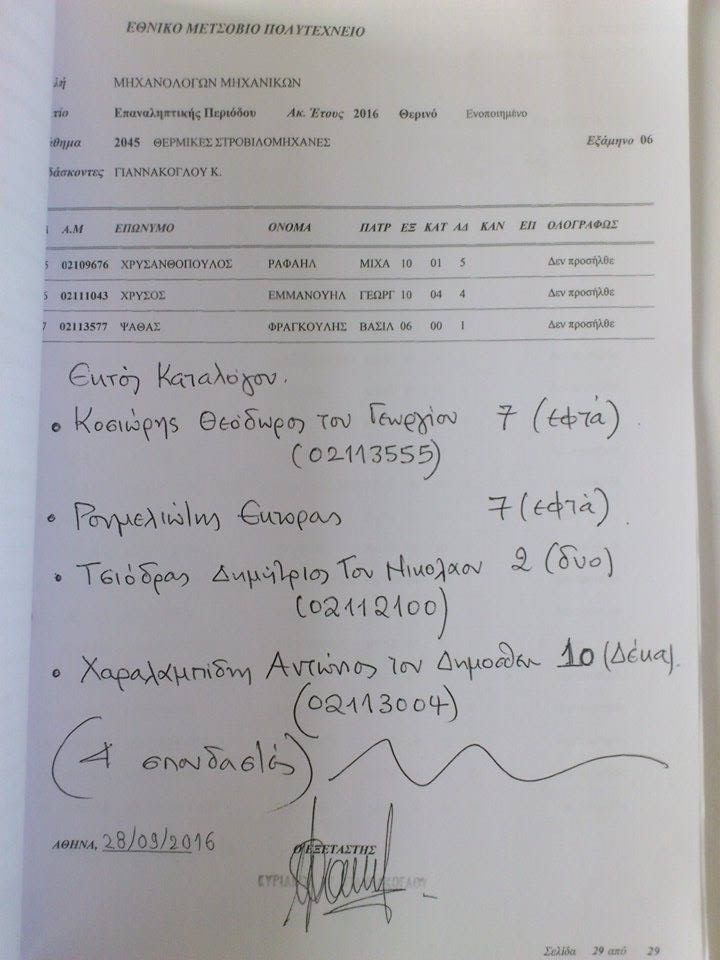 ΕΘΝΙΚΟ ΜΕΤΣΟΒΙΟ ΠΟΛΥΤΕΧΝΕΙΟ
λή ΜΗΧΑΝΟΛΟΓΩΝ ΜΗΧΑΝΙΚΩΝ
τίο Επαναληπτικής Περιόδου Ακ. Έτους 2016 Θερινό Ενοποιημένο
άθημα 2045 ΘΕΡΜΙΚΕΣ ΣΤΡΟΒΙΛΟΜΗΧΑΝΕΣ Εξάμηνο 06
δάσκοντες ΓΙΑΝΝΑΚΟΓΛΟΥ Κ.
Α.Μ ΕΠΩΝΥΜΟ ΟΝΟΜΑ ΠΑΤΡ ΕΞ ΚΑΤ ΑΔ ΚΑΝ ΕΠ ΟΛΟΓΡΑΦΩΣ
5 02109676 ΧΡΥΣΑΝΘΟΠΟΥΛΟΣ ΡΑΦΑΗΛ ΜΙΧΑ 10 01 5 Δεν προσήλθε
6 02111043 ΧΡΥΣΟΣ ΕΜΜΑΝΟΥΗΛ ΓΕΩΡΓ 10 04 4 Δεν προσήλθε
7 02113577 ΨΑΘΑΣ ΦΡΑΓΚΟΥΛΗΣ ΒΑΣΙΛ 06 00 1 Δεν προσήλθε
Εκτός Καταλόγου.
• Κοσιώρης Θεόδωρος του Γεωργίου 7 (εφτά).
(02113555)
• Ρουμελιώτης Εκτορας 7 (εφτά).
• Τσιόδρας Δημήτριος Του Νικολαου 2 (δυο)
(02112100)
• Χαραλαμπίδης Αντώνιος του Δημοσθεν 10 (Δέκα).
(02113004)
(4 σπουδαστές)
ΑΘΗΝΑ, 28/09/2016 Ο ΕΞΕΤΑΣΤΗΣ
Σελίδα 29 από 29